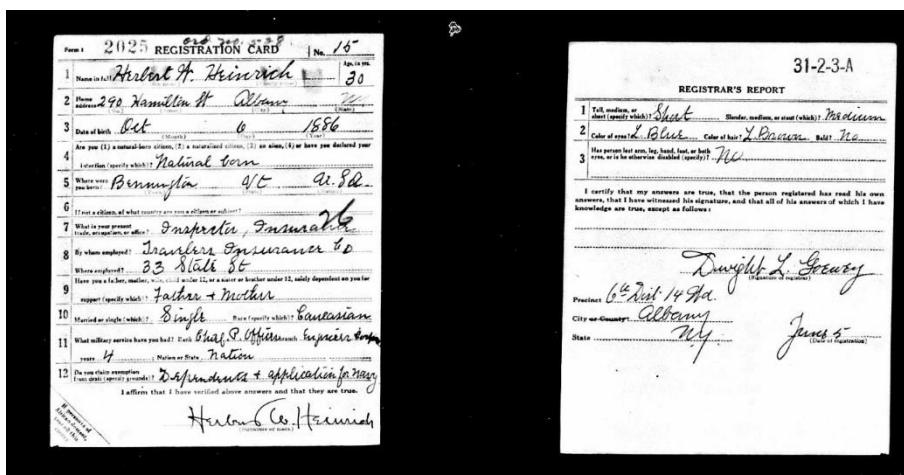 Form 1 2025 REGISTRATION CARD No. 15
1 Name in full Herbert W. Heinrich Age, in yrs. 30
2 Home address 290 Hamilton St Albany
3 Date of birth Oct 6 1886
(Month) (Day) (Year)
4 Are you (1) a natural-born citizen, (2) a naturalized citizen, (3) an alien, (4) or have you declared your
intention (specify which)? Natural born
5 Where were you born? Bennington Vt U.S.A.
6 If not a citizen, of what country are you a citizen or subject?
7 What is your present trade, occupation, or office? Inspector, Insurance
8 By whom employed? Travelers Insurance Co
Where employed? 33 State St
9 Have you a father, mother, wife, child under 12, or a sister or brother under 12, solely dependent on you for
support (specify which)? Father + Mother
10 Married or single (which)? Single Race (specify which)? Caucasian
11 What military service have you had? Rank P. Officer branch
years 4 Nation or State Nation
12 Do you claim exemption from draft (specify grounds)? Dependents + application for Navy
I affirm that I have verified above answers and that they are true.
Herbert W. Heinrich
If person is of African descent, tear off this corner
31-2-3-A
REGISTRAR'S REPORT
1 Tall, medium, or short (specify which)? Short Slender, medium, or stout (which)? Medium
2 Color of eyes? L. Blue Color of hair? L. Brown Bald? No
3 Has person lost arm, leg, hand, foot, or both eyes, or is he otherwise disabled (specify)? No
I certify that my answers are true, that the person registered has read his own
answers, that I have witnessed his signature, and that all of his answers of which I have
knowledge are true, except as follows:
Dwight L. Goewey
(Signature of registrar)
Precinct 6th Dist 14 Wd.
City or County Albany
State NY June 5
(Date of registration)